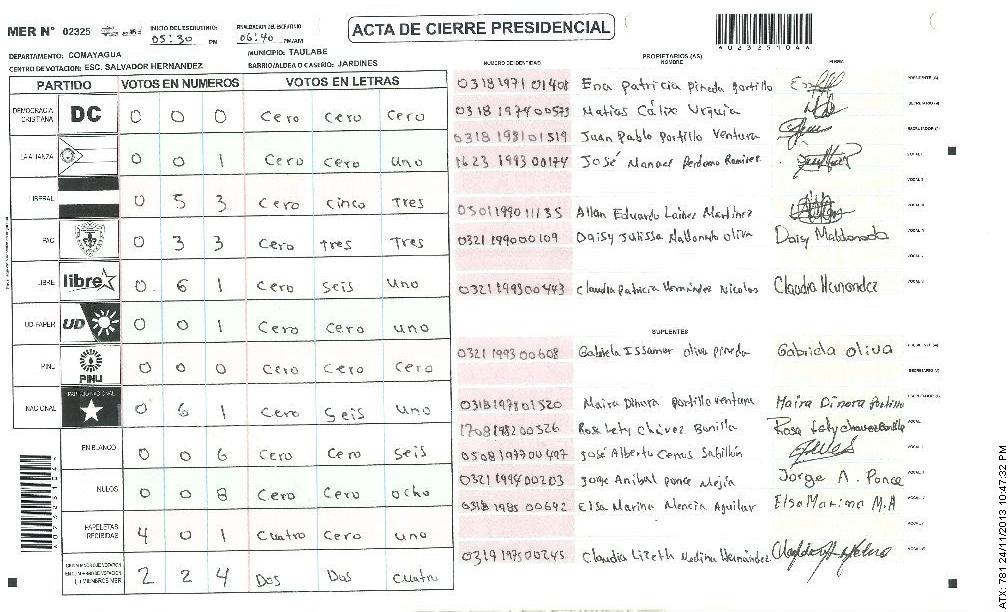 MER N° 02325
INICIO DEL ESCRUTINIO:
05:30 PM
FINALIZACION DEL ESCRUTINIO
06:40 PM/AM
ACTA DE CIERRE PRESIDENCIAL
A02325104A
DEPARTAMENTO: COMAYAGUA
MUNICIPIO: TAULABE
CENTRO DE VOTACION: ESC. SALVADOR HERNANDEZ
BARRIO/ALDEA O CASERIO: JARDINES
PARTIDO VOTOS EN NUMEROS VOTOS EN LETRAS
DEMOCRACIA CRISTIANA DC 0 0 0 Cero Cero Cero
LA ALIANZA 0 0 1 Cero Cero uno
LIBERAL 0 5 3 Cero cinco Tres
PAC 0 3 3 Cero tres Tres
LIBRE libre 0 6 1 Cero seis uno
UD-FAPER UD 0 0 1 Cero Cero uno
PINU PINU 0 0 0 Cero Cero Cero
NACIONAL PARTIDO NACIONAL 0 6 1 Cero Seis uno
EN BLANCO 0 0 6 Cero Cero seis
NULOS 0 0 8 Cero Cero ocho
PAPELETAS RECIBIDAS 4 0 1 Cuatro Cero uno
2 2 4 Dos Dos cuatro
PROPIETARIOS (AS)
NUMERO DE IDENTIDAD NOMBRE FIRMA
0318 1971 01408 Ena Patricia pineda portillo PRESIDENTE (A)
0318 1974 00573 Matias Cálix Urquia SECRETARIO (A)
0318 1981 01519 Juan Pablo Portillo Ventura ESCRUTADOR (A)
1623 1993 00174 José Manuel Perdomo Ramirez VOCAL I
0501 1990 11135 Allan Eduardo Lainez Martinez
0321 1990 00109 Daisy Julissa Maldonado oliva Daisy Maldonado
0321 1993 00443 Claudia Patricia Hernández Nicolas Claudia Hernandez
SUPLENTES
0321 1993 00608 Gabriela Issamar oliva pineda Gabriela oliva
SECRETARIO (A)
0318 1978 01520 Maira Dinora portillo ventura Maira Dinora portillo
1708 1982 00526 Rosa Lety Chávez Bonilla Rosa Lety chavez Bonilla
0508 1977 00497 José Alberto Sabillón
0321 1994 00203 Jorge Anibal ponce Mejía Jorge A. Ponce
0318 1985 00692 Elsa Marina Mencia Aguilar Elsa Marina M.A
0319 1975 00245 Claudia Lizeth Medina Hernández
ATX: 781 24/11/2013 10:47:32 PM